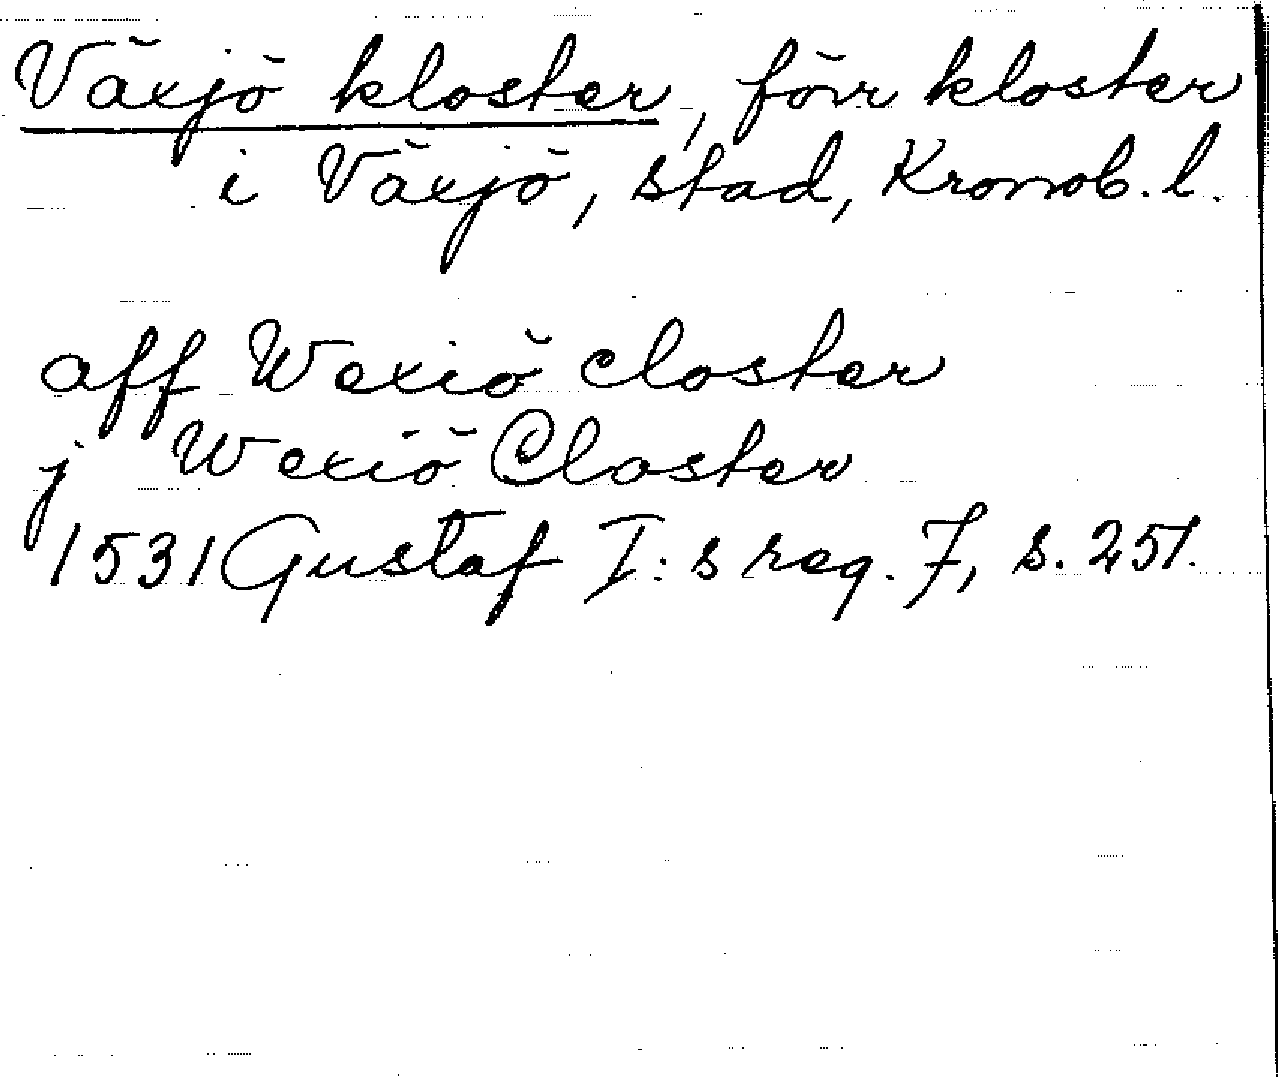 Växjö kloster, förr kloster
i Växjö, stad, Kronob. l.
aff Wexiö closter
j Wexiö Closter
1531 Gustaf I:s reg. 7, s. 251.